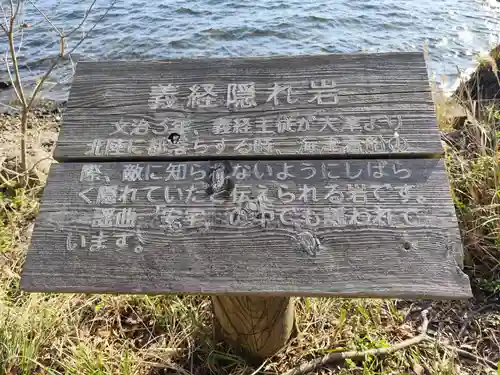 義経隠れ岩
文治3年、義経主従が大津より
北陸に都落ちする際、海津
際、敵に知られないようにしばら
く隠れていたと伝えられる岩です。
謡曲「安宅」の中でも謡われて
います。